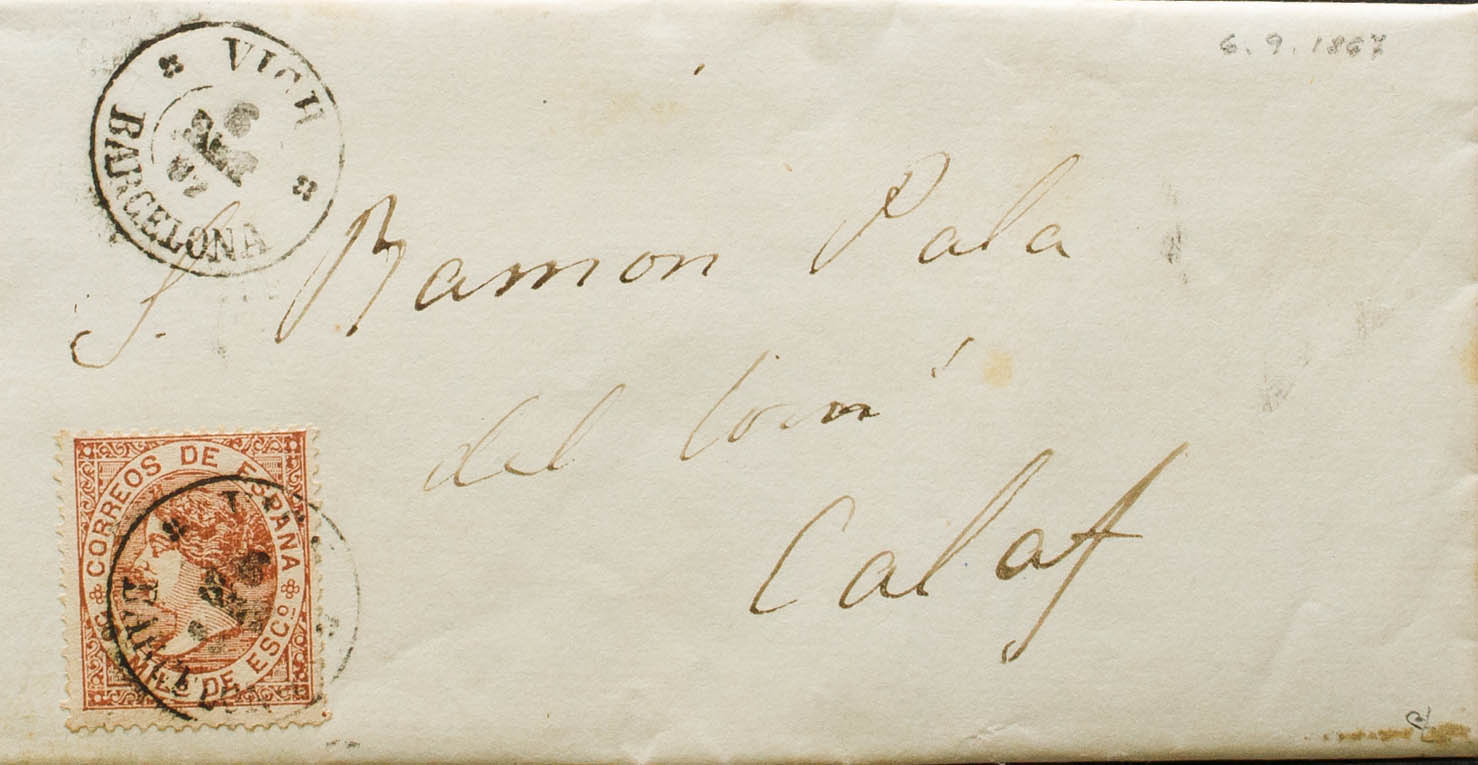 6.9.1867
VICH
6
67
BARCELONA
S. Ramon Pala
del
Calaf
CORREOS DE ESPAÑA
MILS DE ESCO